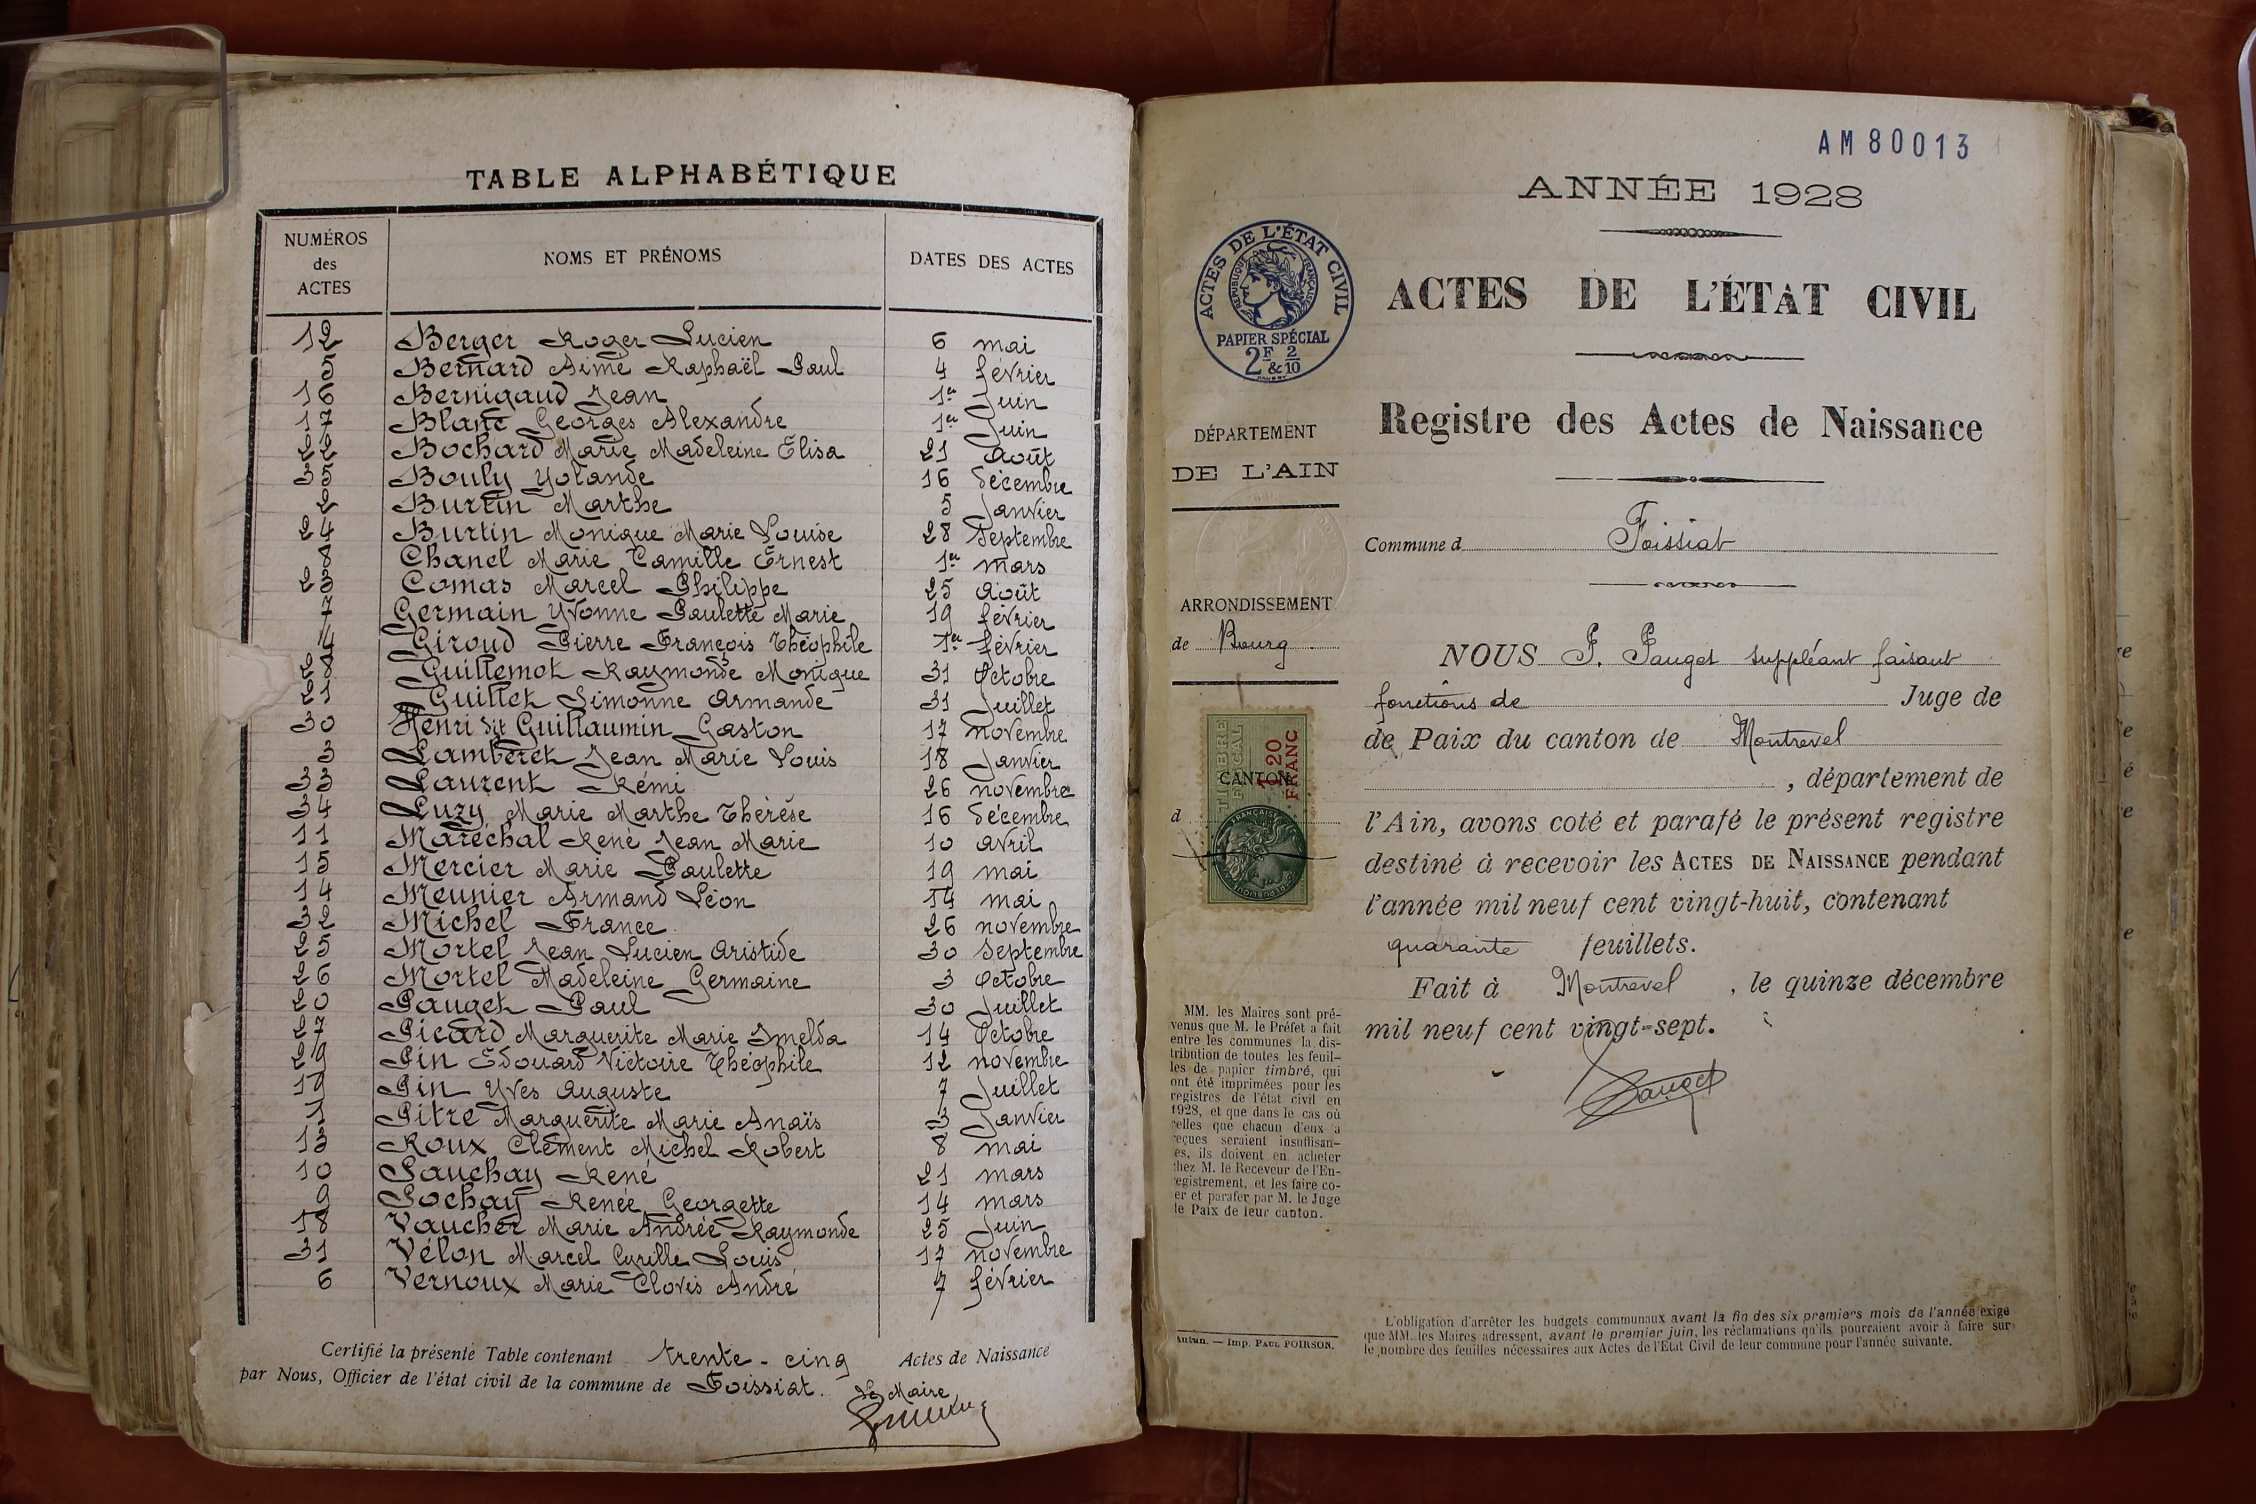 TABLE ALPHABÉTIQUE
NUMÉROS des ACTES NOMS ET PRÉNOMS DATES DES ACTES
12 Berger Roger Lucien 6 mai
5 Bernard Aimé Raphaël Paul 4 février
16 Bernigaud Jean 1er Juin
17 Blanc Georges Alexandre 1er Juin
22 Bochard Marie Madeleine Elisa 21 Août
35 Bouly Yolande 16 décembre
2 Burtin Marthe 5 Janvier
24 Burtin Monique Marie Louise 28 Septembre
8 Chanel Marie Camille Ernest 1er mars
23 Comas Marcel Philippe 25 août
7 Germain Yvonne Paulette Marie 19 février
4 Giroud Pierre François Théophile 1er février
28 Guillemot Raymonde Monique 31 Octobre
21 Guillet Simonne Armande 31 Juillet
30 Henri dit Guillaumin Gaston 17 novembre
3 Lamberet Jean Marie Louis 18 Janvier
33 Laurent Rémi 26 novembre
34 Luzy Marie Marthe Thérèse 16 décembre
11 Maréchal René Jean Marie 10 avril
15 Mercier Marie Paulette 19 mai
14 Meunier Armand Léon 14 mai
32 Michel France 26 novembre
25 Mortel Jean Lucien Aristide 30 Septembre
26 Mortel Madeleine Germaine 3 Octobre
20 Pauget Paul 30 Juillet
27 Picard Marguerite Marie Imelda 14 Octobre
29 Pin Edouard Victoire Théophile 12 novembre
19 Pin Yves Auguste 7 Juillet
1 Pitre Marguerite Marie Anaïs 3 Janvier
13 Roux Clément Michel Robert 8 mai
10 Sauchay René 21 mars
9 Sochay Renée Georgette 14 mars
18 Vaucher Marie Andrée Raymonde 25 Juin
31 Vélon Marcel Cyrille Louis 17 novembre
6 Vernoux Marie Clovis André 7 février
Certifié la présente Table contenant trente-cinq Actes de Naissance
par Nous, Officier de l'état civil de la commune de Foissiat.
Le Maire
AM80013
ANNÉE 1928
ACTES DE L'ÉTAT CIVIL
RÉPUBLIQUE FRANÇAISE
PAPIER SPÉCIAL
2F & 2/10
ACTES DE L'ÉTAT CIVIL
Registre des Actes de Naissance
DÉPARTEMENT
DE L'AIN
Commune d Foissiat
ARRONDISSEMENT
de Bourg
NOUS P. Pauget suppléant faisant
fonctions de Juge de
de Paix du canton de Montrevel
, département de
TIMBRE FISCAL
1,20 FRANC
CANTON
d
l'Ain, avons coté et parafé le présent registre
destiné à recevoir les ACTES DE NAISSANCE pendant
l'année mil neuf cent vingt-huit, contenant
quarante feuillets.
Fait à Montrevel, le quinze décembre
mil neuf cent vingt-sept.
Pauget
MM. les Maires sont pré-
venus que M. le Préfet a fait
entre les communes la dis-
tribution de toutes les feuil-
les de papier timbré, qui
ont été imprimées pour les
registres de l'état civil en
1928, et que dans le cas où
celles que chacun d'eux a
reçues seraient insuffisan-
es, ils doivent en acheter
chez M. le Receveur de l'En-
registrement, et les faire co-
er et parafer par M. le Juge
le Paix de leur canton.
Autun. — Imp. PAUL POIRSON.
L'obligation d'arrêter les budgets communaux avant la fin des six premiers mois de l'année exige
que MM. les Maires adressent, avant le premier juin, les réclamations qu'ils pourraient avoir à faire sur
le nombre des feuilles nécessaires aux Actes de l'Etat Civil de leur commune pour l'année suivante.